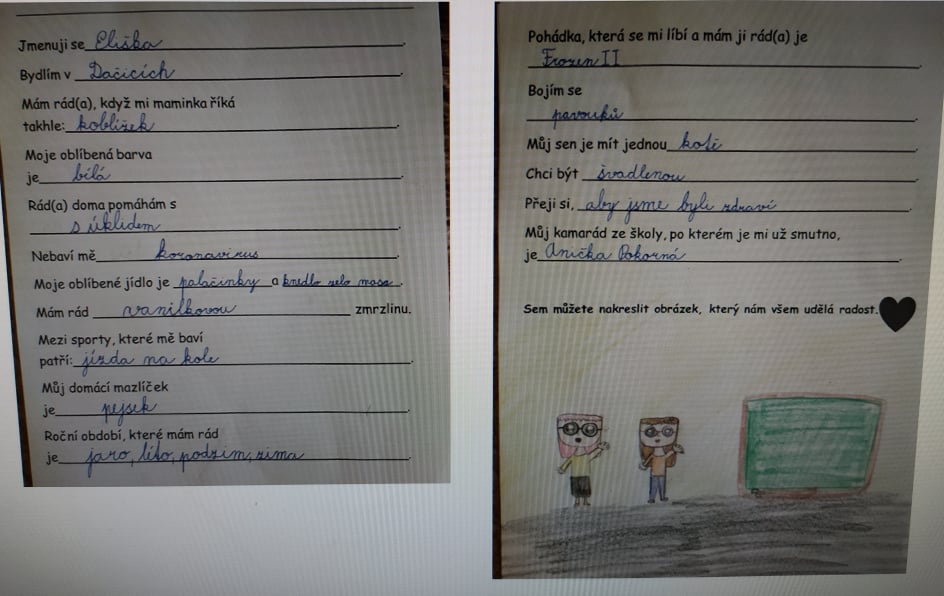 Jmenuji se Eliška.
Bydlím v Dačicích.
Mám rád(a), když mi maminka říká
takhle: koblížek.
Moje oblíbená barva
je bílá.
Rád(a) doma pomáhám s
s úklidem.
Nebaví mě koronavirus.
Moje oblíbené jídlo je palačinky a knedlo zelo maso.
Mám rád vanilkovou zmrzlinu.
Mezi sporty, které mě baví
patří: jízda na kole.
Můj domácí mazlíček
je pejsek.
Roční období, které mám rád
je jaro, léto, podzim, zima.
Pohádka, která se mi líbí a mám ji rád(a) je
Frozen II.
Bojím se
pavouků.
Můj sen je mít jednou kotě.
Chci být švadlenou.
Přeji si, aby jsme byli zdraví.
Můj kamarád ze školy, po kterém je mi už smutno,
je Anička Pokorná.
Sem můžete nakreslit obrázek, který nám všem udělá radost.